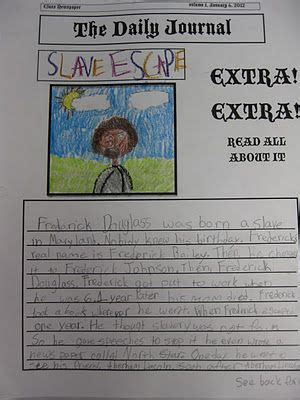 Class Newspaper volume 1, January 6, 2012
The Daily Journal
SLAVE ESCAPE
EXTRA!
EXTRA!
READ ALL
ABOUT IT
Frederick Duglass was born a slave
in Maryland. Nobidy knew his birthday. Fredericks
real name is Frederick Bailey. Then he changed
it to Frederick Johnson, Then, Frederick
Douglass. Frederick got put to work when
he was 6. 1 year later his mom died. Frederick
but a book wherever he went. When Fredrick escaped
one year. He thought slavery was not fun
So he gave speeches to stop it he even wrote a
news paper called North Star. One day he went to
see his friend Abraham
See back for